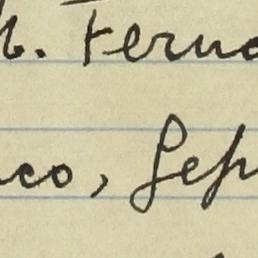 b. Ferna
co, Sep